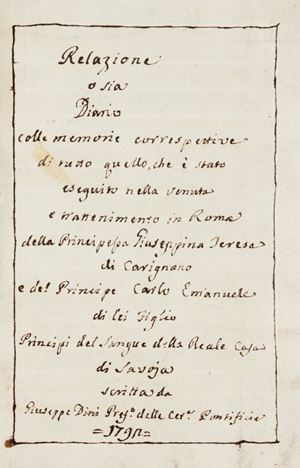 Relazione
o sia
Diario
colle memorie correspettive
di tutto quello, che è stato
eseguito nella venuta
e trattenimento in Roma
della Principessa Giuseppina Teresa
di Carignano
e del Principe Carlo Emanuele
di lei Figlio
Principi del Sangue della Reale Casa
di Savoja
scritta da
Giuseppe Dini Prefº delle Cerº Pontificie